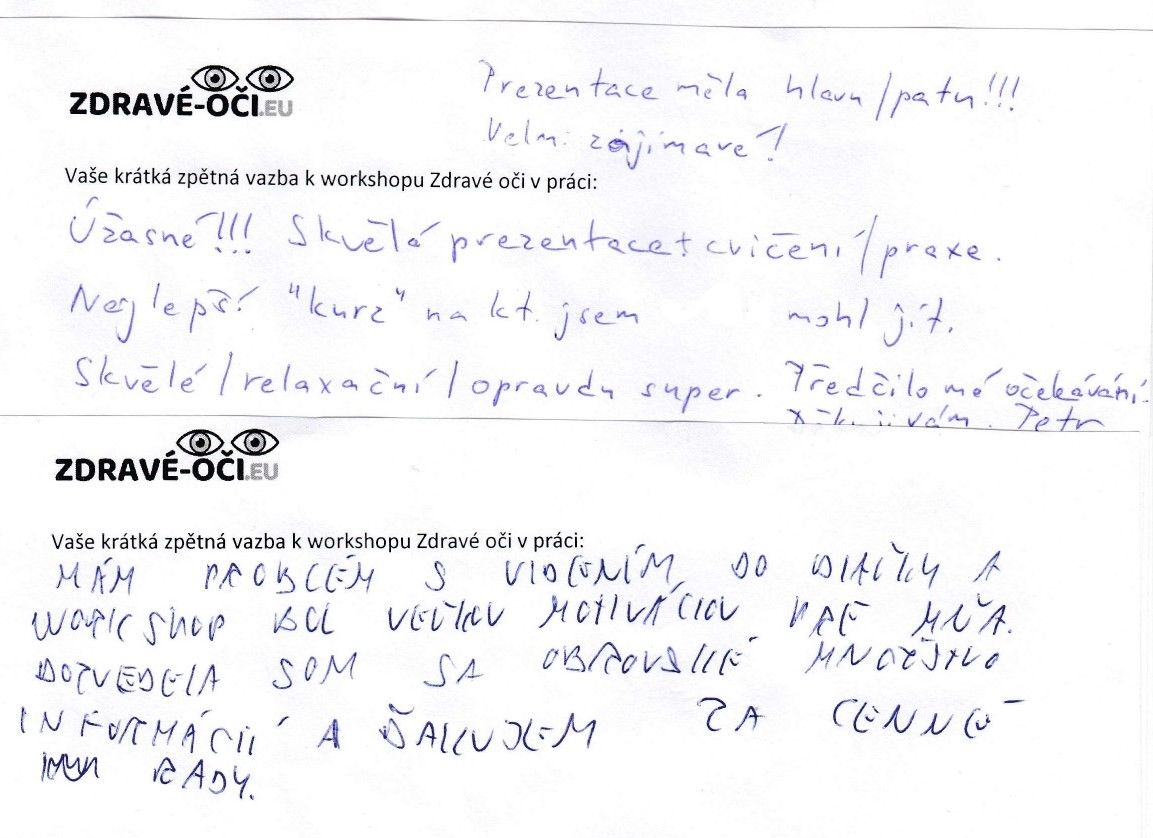 ZDRAVÉ-OČI.EU
Prezentace měla hlavu/patu!!!
Velmi zajímavé!
Vaše krátká zpětná vazba k workshopu Zdravé oči v práci:
Úžasné!!! Skvělá prezentace + cvičení/praxe.
Nejlepší "kurz" na kt. jsem mohl jít.
Skvělé/relaxační/opravdu super. Předčilo mé očekávání.
Děkuji vám. Petr
ZDRAVÉ-OČI.EU
Vaše krátká zpětná vazba k workshopu Zdravé oči v práci:
MÁM PROBLÉM S VIDENÍM DO DIAĽKY A
WORKSHOP BOL VEĽKOU MOTIVÁCIOU PRE MŇA.
DOZVEDELA SOM SA OBROVSKÉ MNOŽSTVO
INFORMÁCIÍ A ĎAKUJEM ZA CENNÉ
RADY.